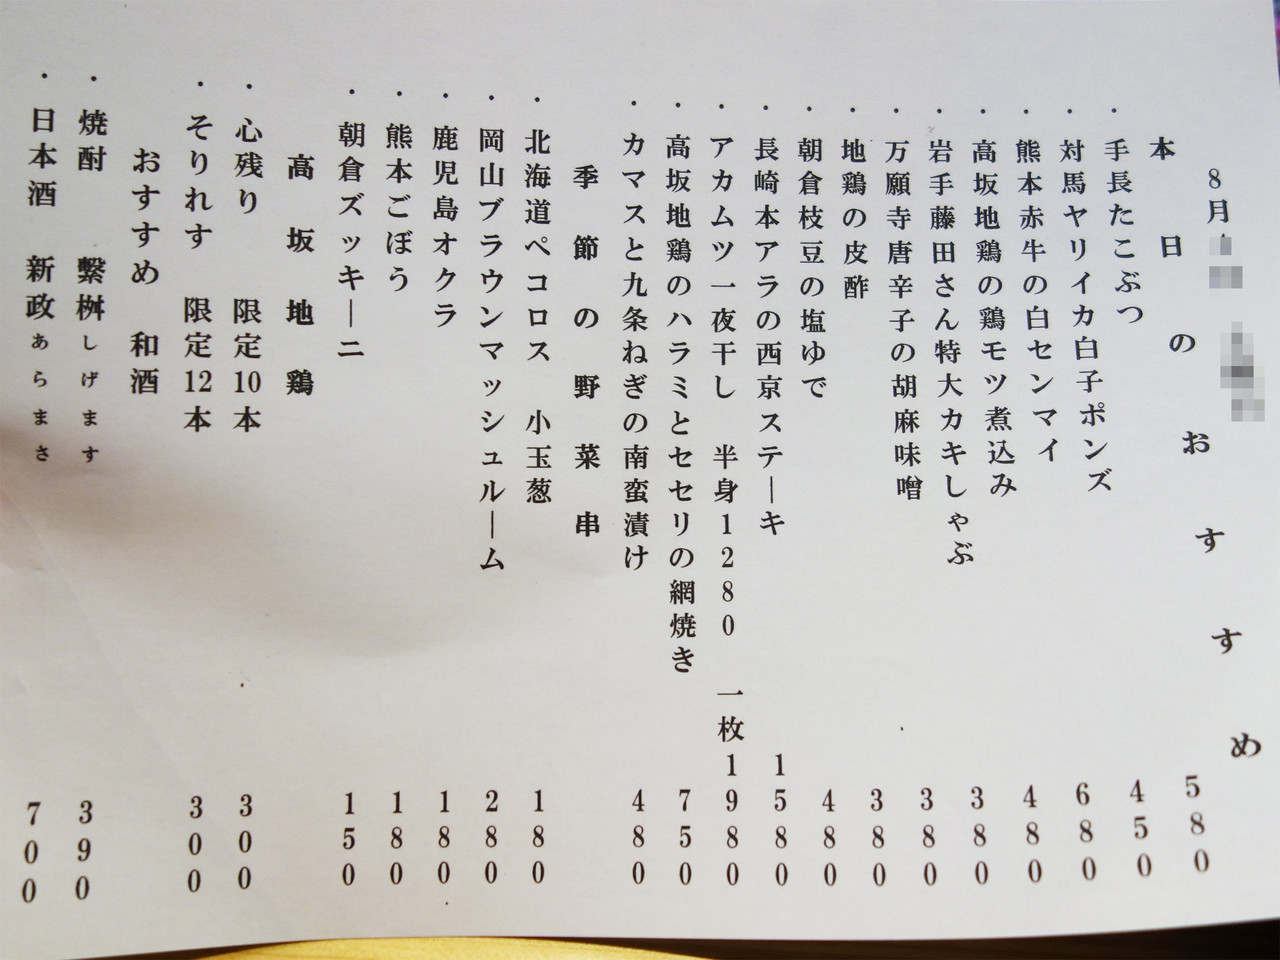 8月
本日のおすすめ
・手長たこぶつ 580
・対馬ヤリイカ白子ポンズ 450
・熊本赤牛の白センマイ 680
・高坂地鶏の鶏モツ煮込み 480
・岩手藤田さん特大カキしゃぶ 380
・万願寺唐辛子の胡麻味噌 380
・地鶏の皮酢 380
・朝倉枝豆の塩ゆで 480
・長崎本アラの西京ステーキ 1580
・アカムツ一夜干し 半身1280 一枚1980
・高坂地鶏のハラミとセセリの網焼き 750
・カマスと九条ねぎの南蛮漬け 480
季節の野菜串
・北海道ペコロス 小玉葱 180
・岡山ブラウンマッシュルーム 280
・鹿児島オクラ 180
・熊本ごぼう 180
・朝倉ズッキーニ 150
高坂地鶏
・心残り 限定10本 300
・そりれす 限定12本 300
おすすめ 和酒
・焼酎 繋桝 しげます 390
・日本酒 新政 あらまさ 700